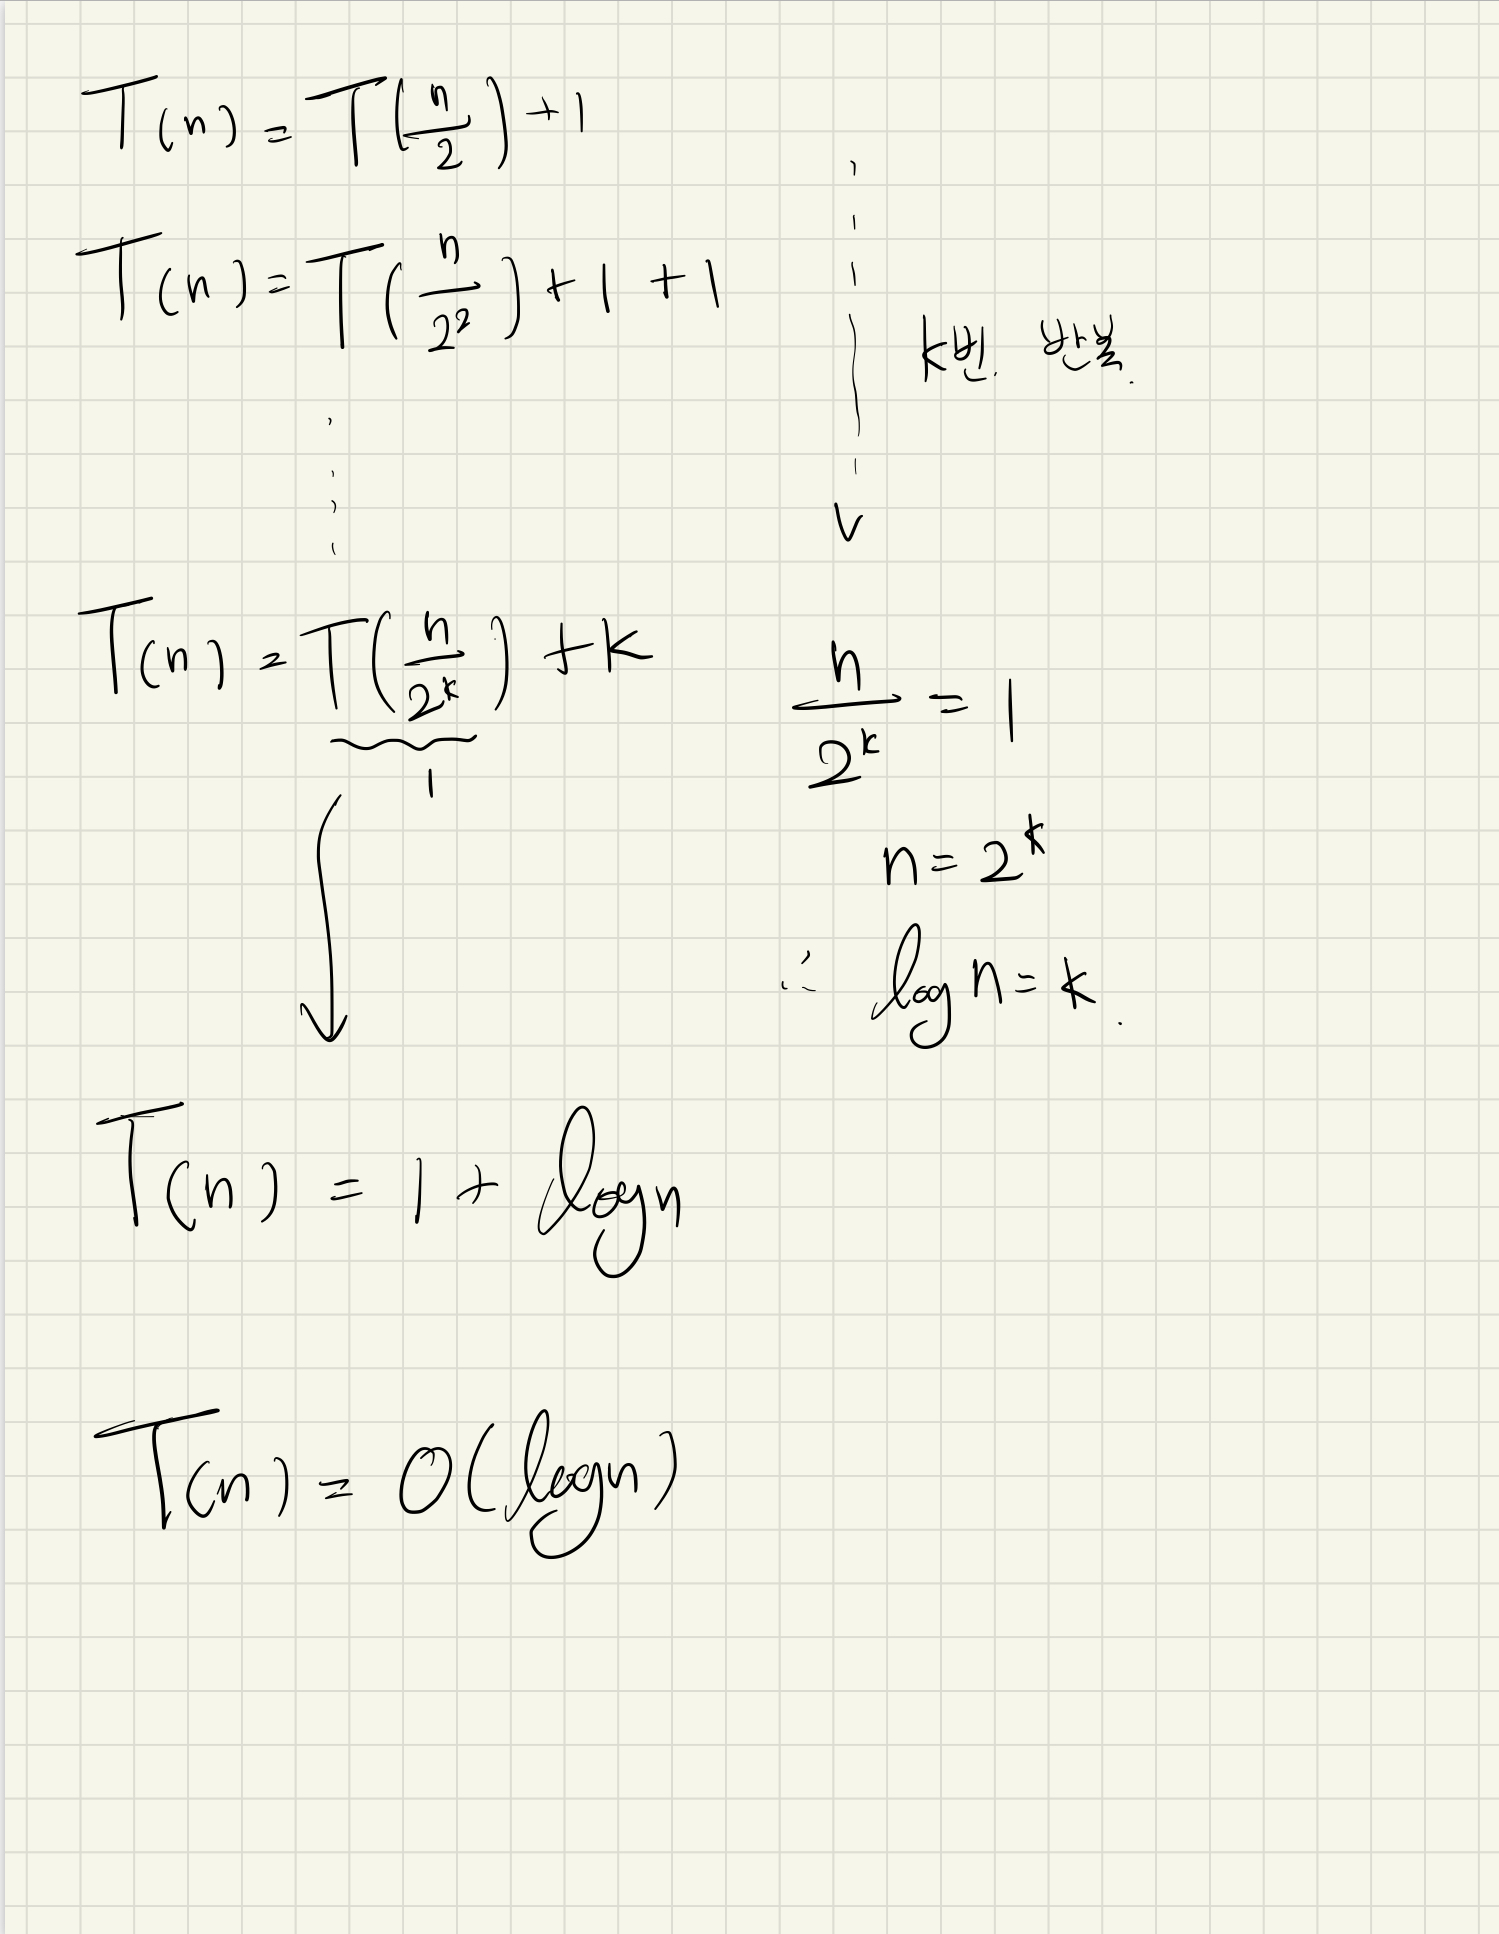 T(n) = T(n/2) + 1
T(n) = T(n/2²) + 1 + 1
K번 반복.
T(n) = T(n/2^k) + k
1
n/2^k = 1
n = 2^k
∴ log n = k.
T(n) = 1 + log n
T(n) = O(log n)